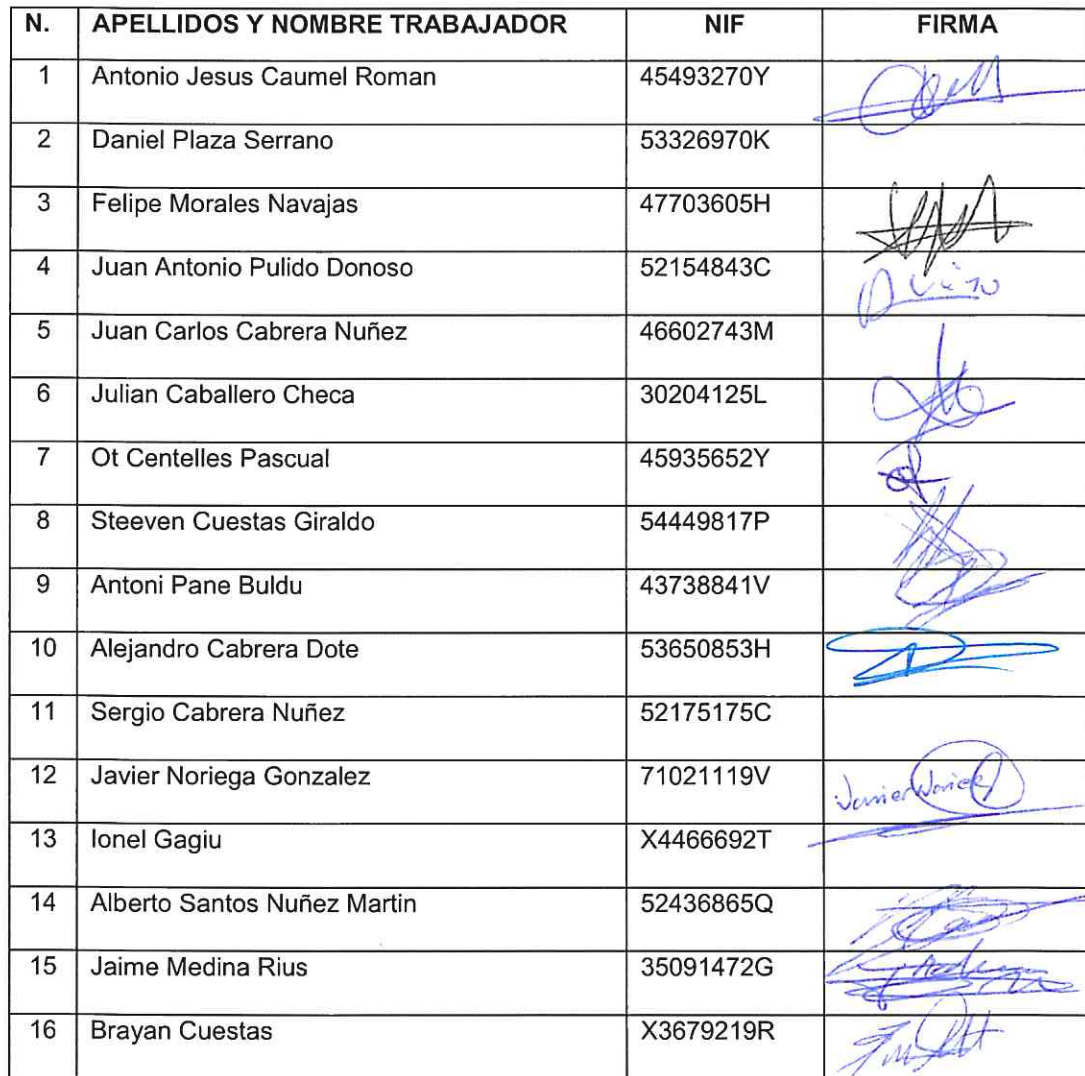 N. APELLIDOS Y NOMBRE TRABAJADOR NIF FIRMA
1 Antonio Jesus Caumel Roman 45493270Y
2 Daniel Plaza Serrano 53326970K
3 Felipe Morales Navajas 47703605H
4 Juan Antonio Pulido Donoso 52154843C
5 Juan Carlos Cabrera Nuñez 46602743M
6 Julian Caballero Checa 30204125L
7 Ot Centelles Pascual 45935652Y
8 Steeven Cuestas Giraldo 54449817P
9 Antoni Pane Buldu 43738841V
10 Alejandro Cabrera Dote 53650853H
11 Sergio Cabrera Nuñez 52175175C
12 Javier Noriega Gonzalez 71021119V
13 Ionel Gagiu X4466692T
14 Alberto Santos Nuñez Martin 52436865Q
15 Jaime Medina Rius 35091472G
16 Brayan Cuestas X3679219R